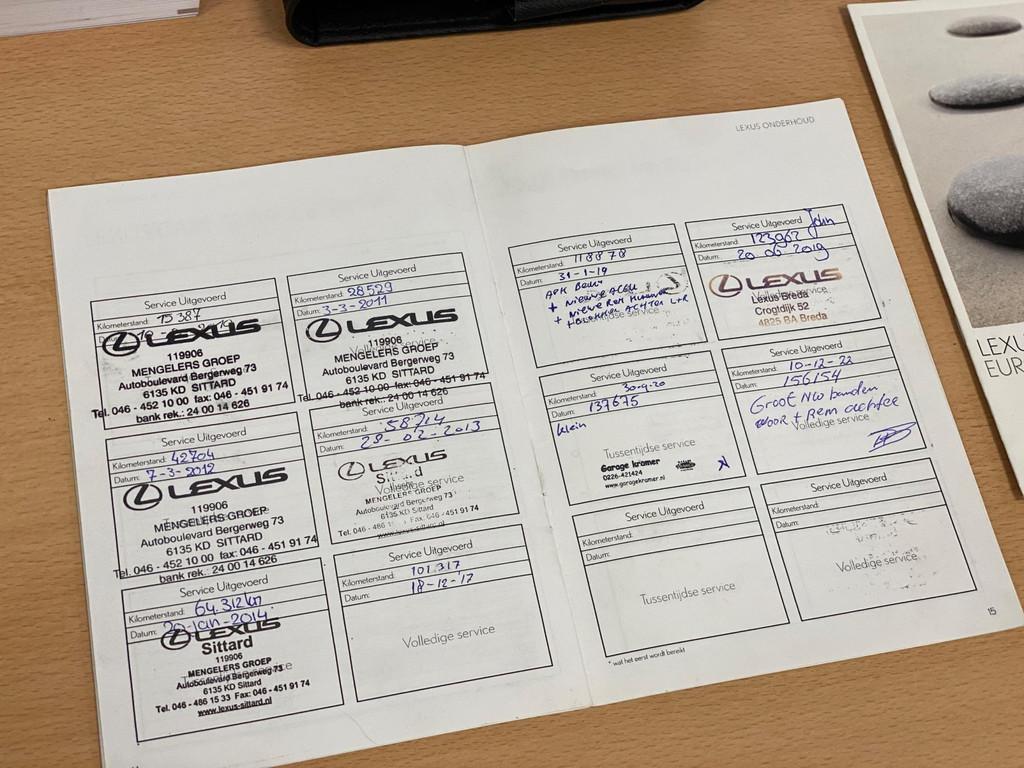 LEXUS ONDERHOUD
Service Uitgevoerd
Kilometerstand: 15387
LEXUS
119906
MENGELERS GROEP
Autoboulevard Bergerweg 73
6135 KD SITTARD
Tel. 046 - 452 10 00 fax: 046 - 451 91 74
bank rek.: 24 00 14 626
Service Uitgevoerd
Kilometerstand: 28529
Datum: 3-3-2011
LEXUS
119906
MENGELERS GROEP
Autoboulevard Bergerweg 73
6135 KD SITTARD
Tel. 046 - 452 10 00 fax: 046 - 451 91 74
bank rek.: 24 00 14 626
Service Uitgevoerd
Kilometerstand: 42704
Datum: 7-3-2012
LEXUS
119906
MENGELERS GROEP
Autoboulevard Bergerweg 73
6135 KD SITTARD
Tel. 046 - 452 10 00 fax: 046 - 451 91 74
bank rek.: 24 00 14 626
Service Uitgevoerd
Kilometerstand: 58714
Datum: 28-02-2013
LEXUS
Volledige service
MENGELERS GROEP
Autoboulevard Bergerweg 73
6135 KD Sittard
www.lexus-sittard.nl
Service Uitgevoerd
Kilometerstand: 64.312 km
Datum: 20-jan-2014
LEXUS
Sittard
119906
MENGELERS GROEP
Autoboulevard Bergerweg 73
6135 KD Sittard
Tel. 046 - 486 15 33 Fax: 046 - 451 91 74
www.lexus-sittard.nl
Service Uitgevoerd
Kilometerstand: 101.317
Datum: 18-12-17
Volledige service
Service Uitgevoerd
Kilometerstand: 118878
Datum: 31-1-19
APK
+ Nieuwe Accu
+ Nieuwe Rem
Service Uitgevoerd
Kilometerstand: 123967
Datum: 20-06-2019
LEXUS
Lexus Breda
Crogtdijk 52
4825 BA Breda
Service Uitgevoerd
Kilometerstand: 30-9-20
Datum: 137675
klein
Tussentijdse service
Garage kramer
0226-421424
www.garagekramer.nl
Service Uitgevoerd
Kilometerstand: 10-12-22
Datum: 156154
Groot NW banden
voor + Rem achter
Volledige service
Service Uitgevoerd
Kilometerstand:
Datum:
Tussentijdse service
Service Uitgevoerd
Kilometerstand:
Datum:
Volledige service
* wat het eerst wordt bereikt
15
LEXU
EUR